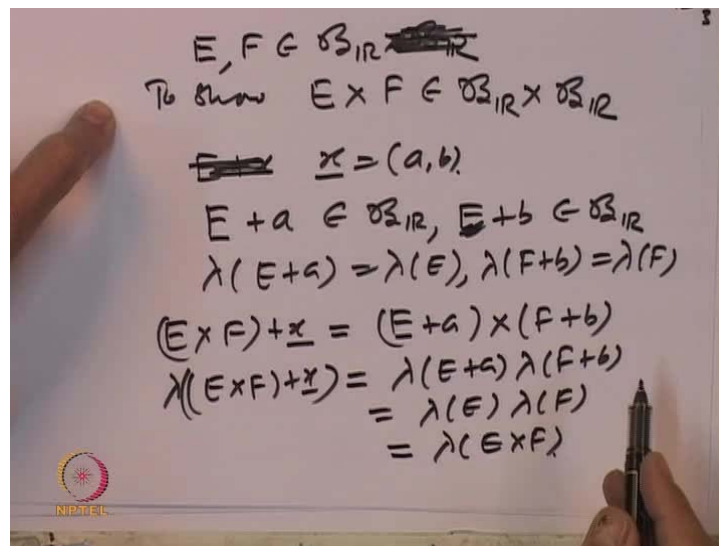 3
E, F ∈ 𝓑_ℝ
To show E × F ∈ 𝓑_ℝ × 𝓑_ℝ
x = (a, b).
E + a ∈ 𝓑_ℝ, E + b ∈ 𝓑_ℝ
λ(E + a) = λ(E), λ(F + b) = λ(F)
(E × F) + x = (E + a) × (F + b)
λ((E × F) + x) = λ(E + a) λ(F + b)
= λ(E) λ(F)
= λ(E × F).
NPTEL